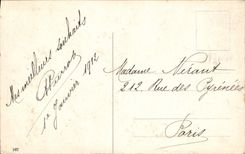 Mes meilleurs souhaits
1er Janvier 1912
Madame Nérant
212 Rue des Pyrénées
Paris